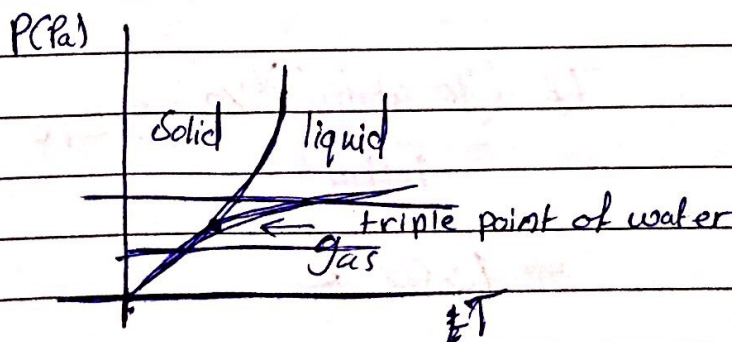 P(Pa)
Solid liquid
triple point of water
gas
T